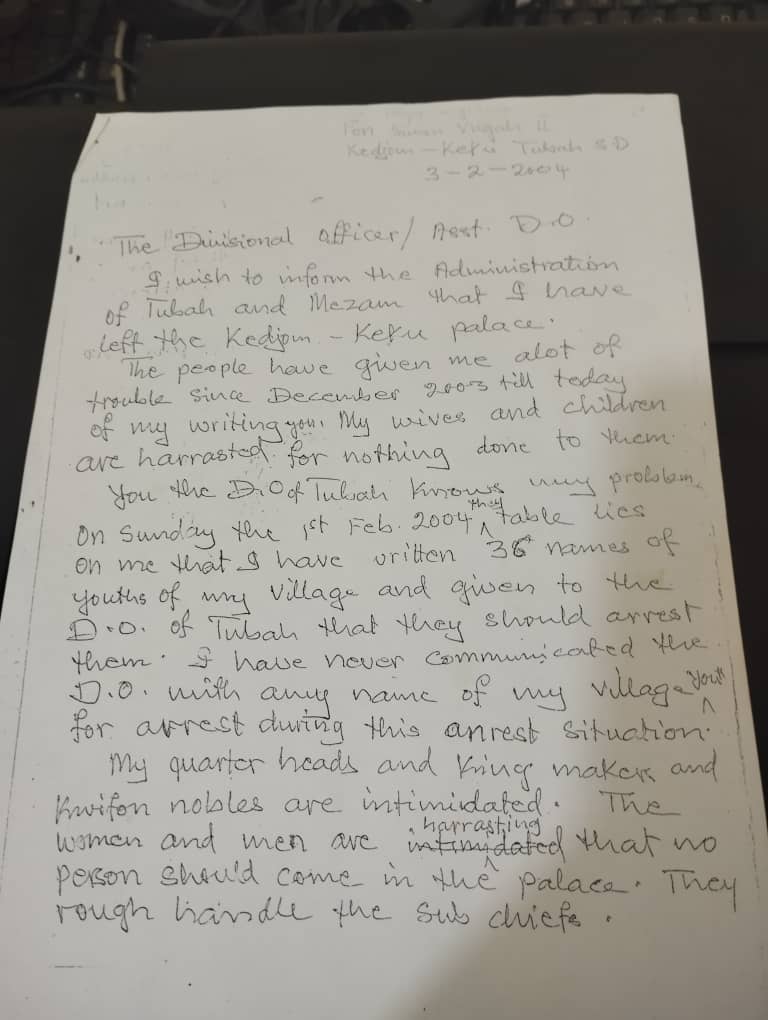 Fon Simon Vugah II
Kedjom - Keku Tubah SD
3-2-2004
The Divisional Officer/ Asst. D.O.
I wish to inform the Administration
of Tubah and Mezam that I have
left the Kedjom - Keku palace.
The people have given me alot of
trouble since December 2003 till today
of my writing you. My wives and children
are harrasted for nothing done to them.
You the D.O of Tubah knows my problem.
On Sunday the 1st Feb. 2004 they table lies
on me that I have written 36 names of
youths of my village and given to the
D.O. of Tubah that they should arrest
them. I have never communicated the
D.O. with any name of my village youth
for arrest during this anrest situation.
My quarter heads and King makers and
Kwifon nobles are intimidated. The
women and men are harrasting that no
person should come in the palace. They
rough handle the sub chiefs.